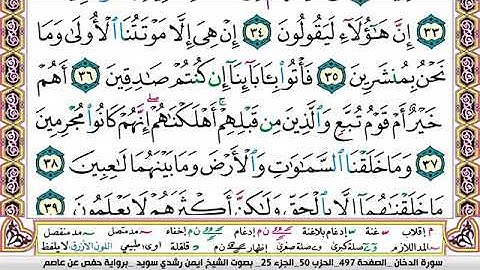 ٣٣ إِنَّ هَـٰٓؤُلَآءِ لَيَقُولُونَ ٣٤ إِنْ هِىَ إِلَّا مَوْتَتُنَا ٱلْأُولَىٰ وَمَا
نَحْنُ بِمُنشَرِينَ ٣٥ فَأْتُوا۟ بِـَٔابَآئِنَآ إِن كُنتُمْ صَـٰدِقِينَ ٣٦ أَهُمْ
خَيْرٌ أَمْ قَوْمُ تُبَّعٍ وَٱلَّذِينَ مِن قَبْلِهِمْ ۚ أَهْلَكْنَـٰهُمْ ۖ إِنَّهُمْ كَانُوا۟ مُجْرِمِينَ
٣٧ وَمَا خَلَقْنَا ٱلسَّمَـٰوَٰتِ وَٱلْأَرْضَ وَمَا بَيْنَهُمَا لَـٰعِبِينَ ٣٨
مَا خَلَقْنَـٰهُمَآ إِلَّا بِٱلْحَقِّ وَلَـٰكِنَّ أَكْثَرَهُمْ لَا يَعْلَمُونَ ٣٩
م إقلاب غنة إدغام بلاغنة إدغام ن م إخفاء مد متصل مد منفصل
مد اللازم صلة كبرى وصلة صغرى إظهار ن م قلقلة اوى طبيعي اللون الأزرق لا يلفظ
سورة الدخان _الصفحة 497_ الحزب 50_ الجزء 25_ بصوت الشيخ ايمن رشدي سويد _ برواية حفص عن عاصم